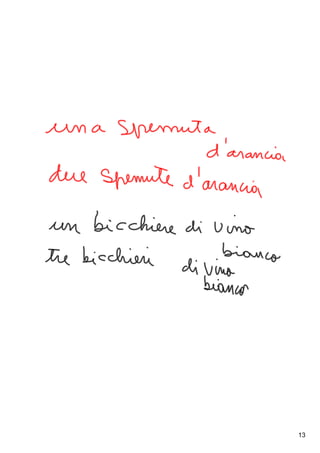 una Spemuta
d'arancia
due Spemute d'arancia
un bicchiere di vino
bianco
tre bicchieri di vino
bianco
13